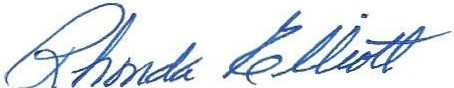 Rhonda Elliott